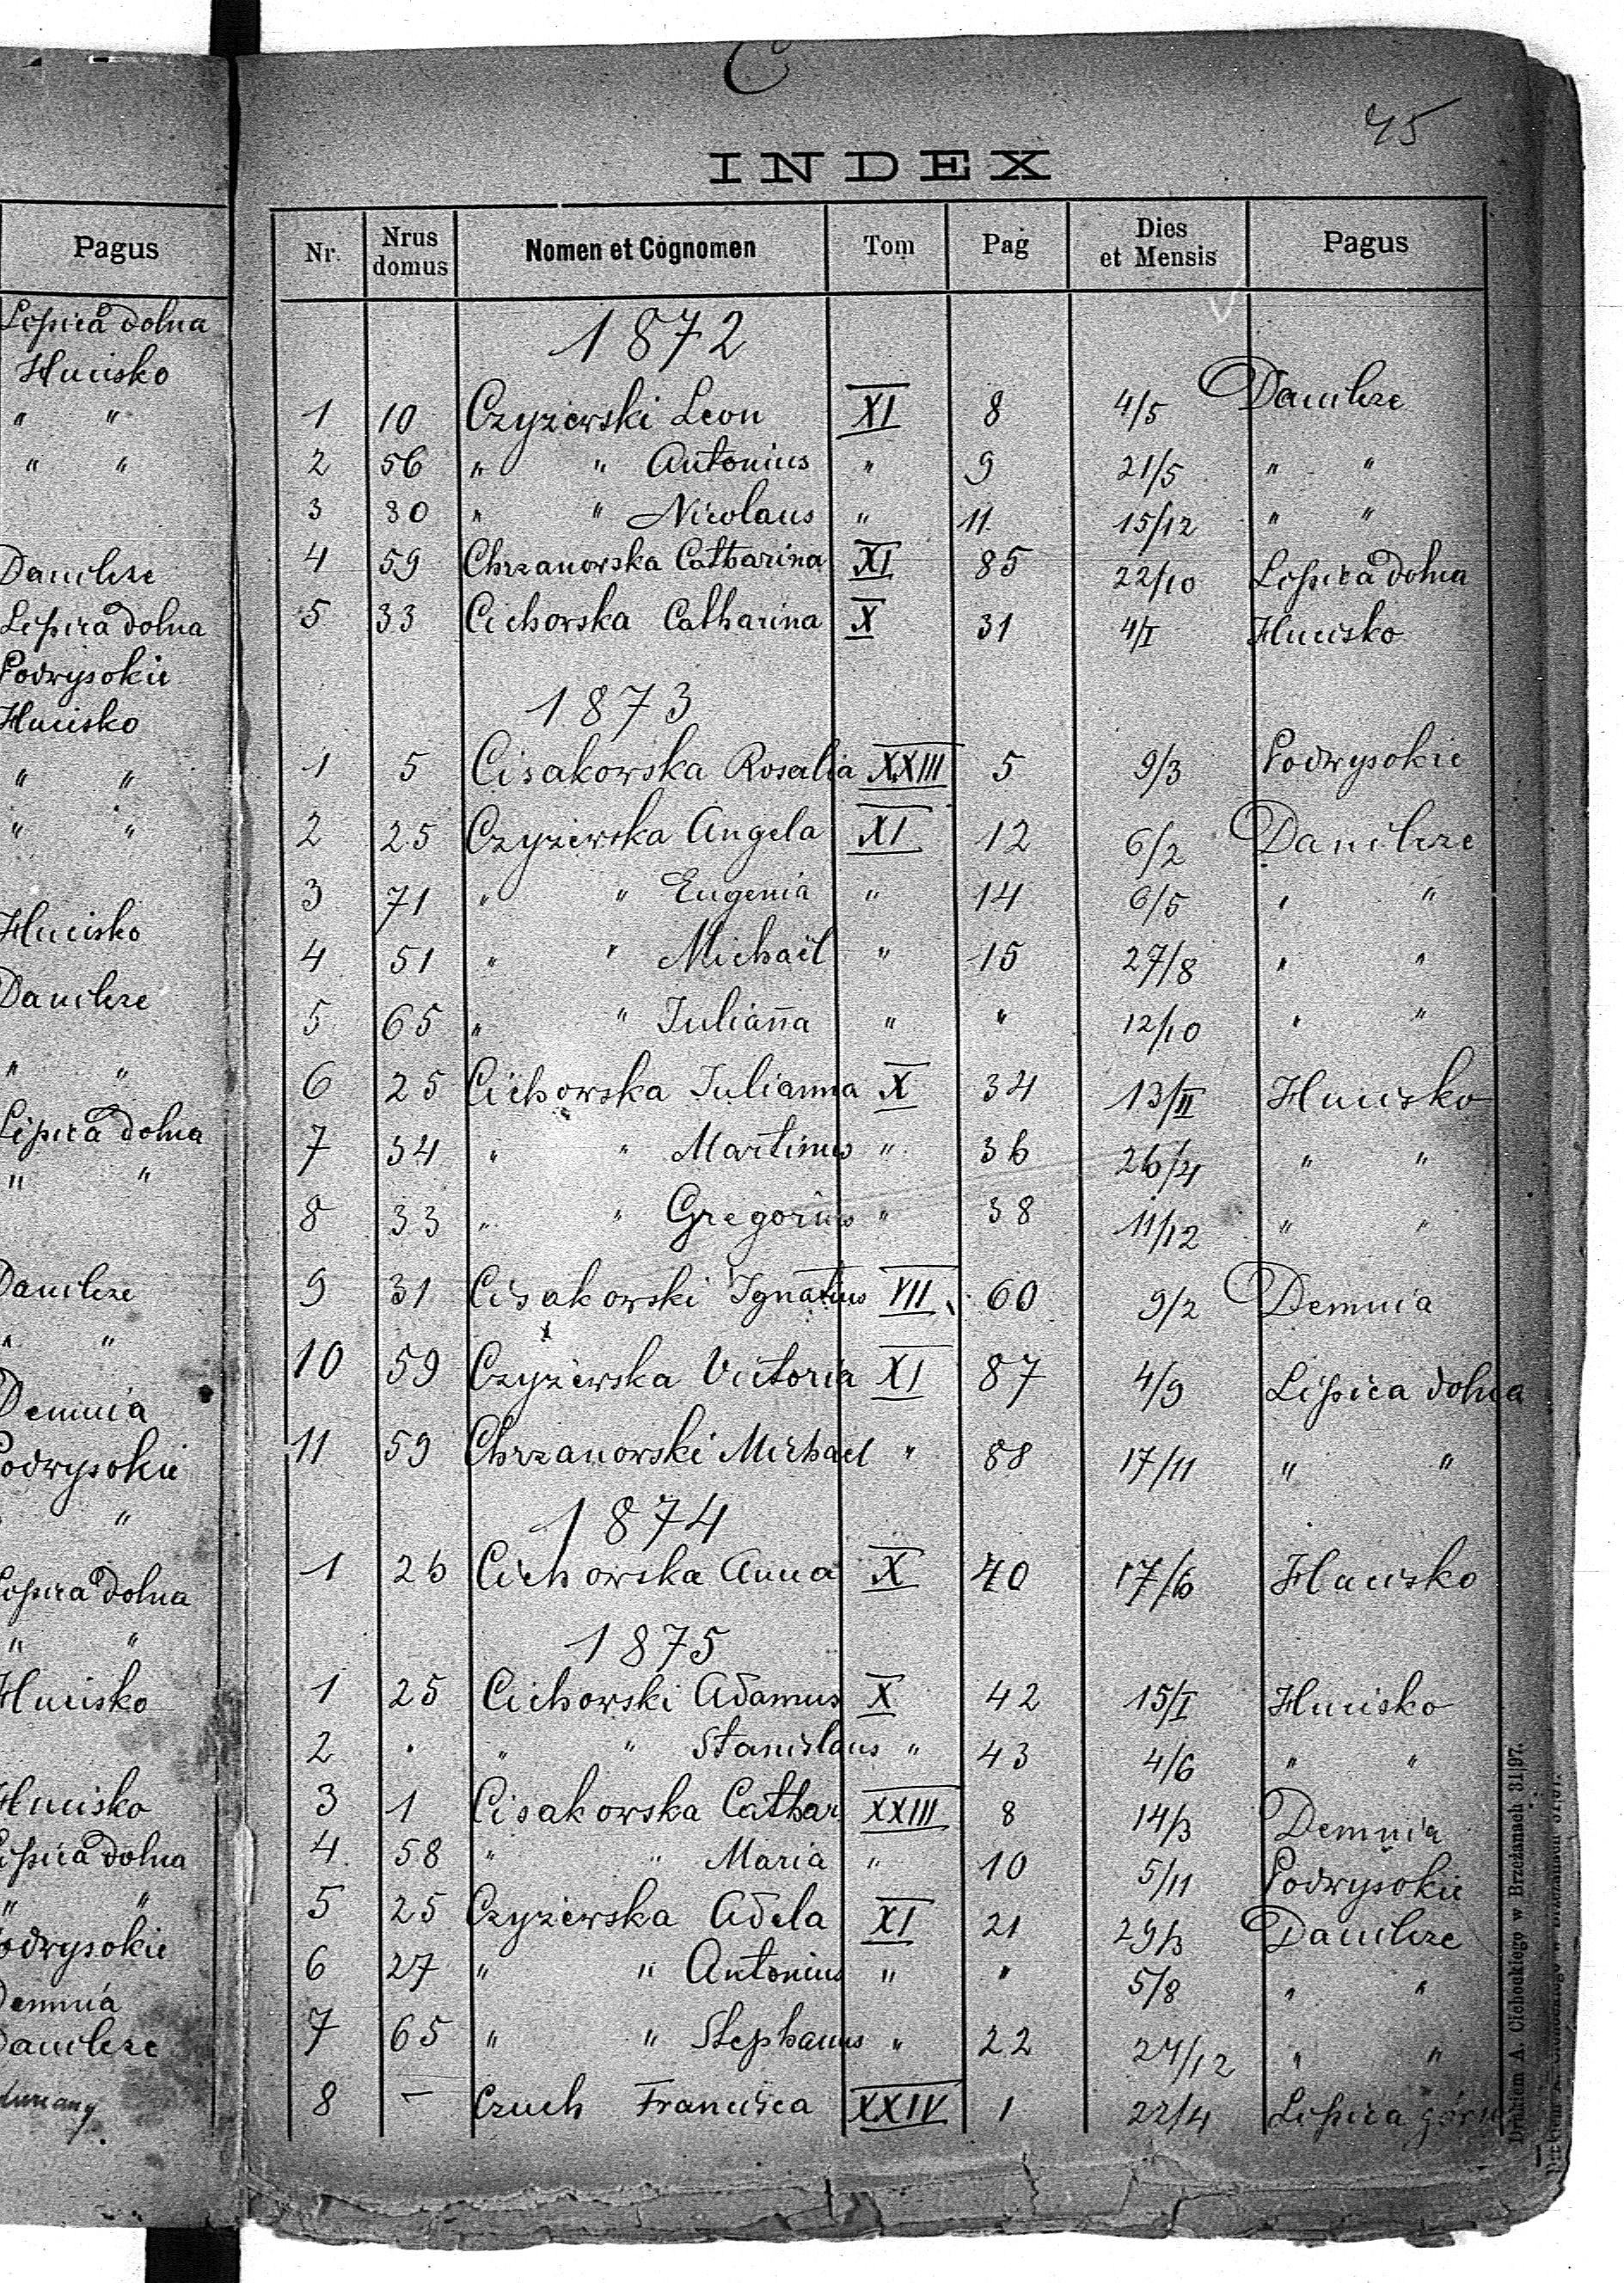 C
45
INDEX
Pagus
Nr. Nrus domus Nomen et Cognomen Tom Pag Dies et Mensis Pagus
Lipica dolna
Hucisko
" "
" "
Danilcze
Lipica dolna
Podwysokie
Hucisko
" "
" "
Hucisko
Danilcze
" "
Lipica dolna
" "
Danilcze
" "
Demnia
Podwysokie
"
Lipica dolna
" "
Hucisko
Hucisko
Lipica dolna
" "
Podwysokie
Demnia
Danilcze
1872
1 10 Czyżewski Leon XI 8 4/5 Danilcze
2 56 " " Antonius " 9 21/5 " "
3 30 " " Nicolaus " 11 15/12 " "
4 59 Chrzanowska Catharina XI 85 22/10 Lipica dolna
5 33 Cichowska Catharina X 31 4/I Hucisko
1873
1 5 Cisakowska Rosalia XXIII 5 9/3 Podwysokie
2 25 Czyżewska Angela XI 12 6/2 Danilcze
3 71 " " Eugenia " 14 6/5 " "
4 51 " " Michail " 15 27/8 " "
5 65 " " Julianna " " 12/10 " "
6 25 Cichowska Julianna X 34 13/II Hucisko
7 34 " " Martinus " 36 26/4 " "
8 33 " " Gregorius " 38 11/12 " "
9 31 Cisakowski Ignatius VII 60 9/2 Demnia
10 59 Czyżewska Victoria XI 87 4/9 Lipica dolna
11 59 Chrzanowski Michael " 88 17/11 " "
1874
1 26 Cichowska Anna X 40 17/6 Hucisko
1875
1 25 Cichowski Adamus X 42 15/I Hucisko
2 " " " Stanislaus " 43 4/6 " "
3 1 Cisakowska Cathar XXIII 8 14/3 Demnia
4 58 " " Maria " 10 5/11 Podwysokie
5 25 Czyżewska Adela XI 21 29/3 Danilcze
6 27 " " Antonius " " 5/8 " "
7 65 " " Stephanus " 22 24/12 " "
8 – Czuch Francisca XXIV 1 22/4 Lipica górn
Drukiem A. Cichockiego w Brzeżanach 31|97.